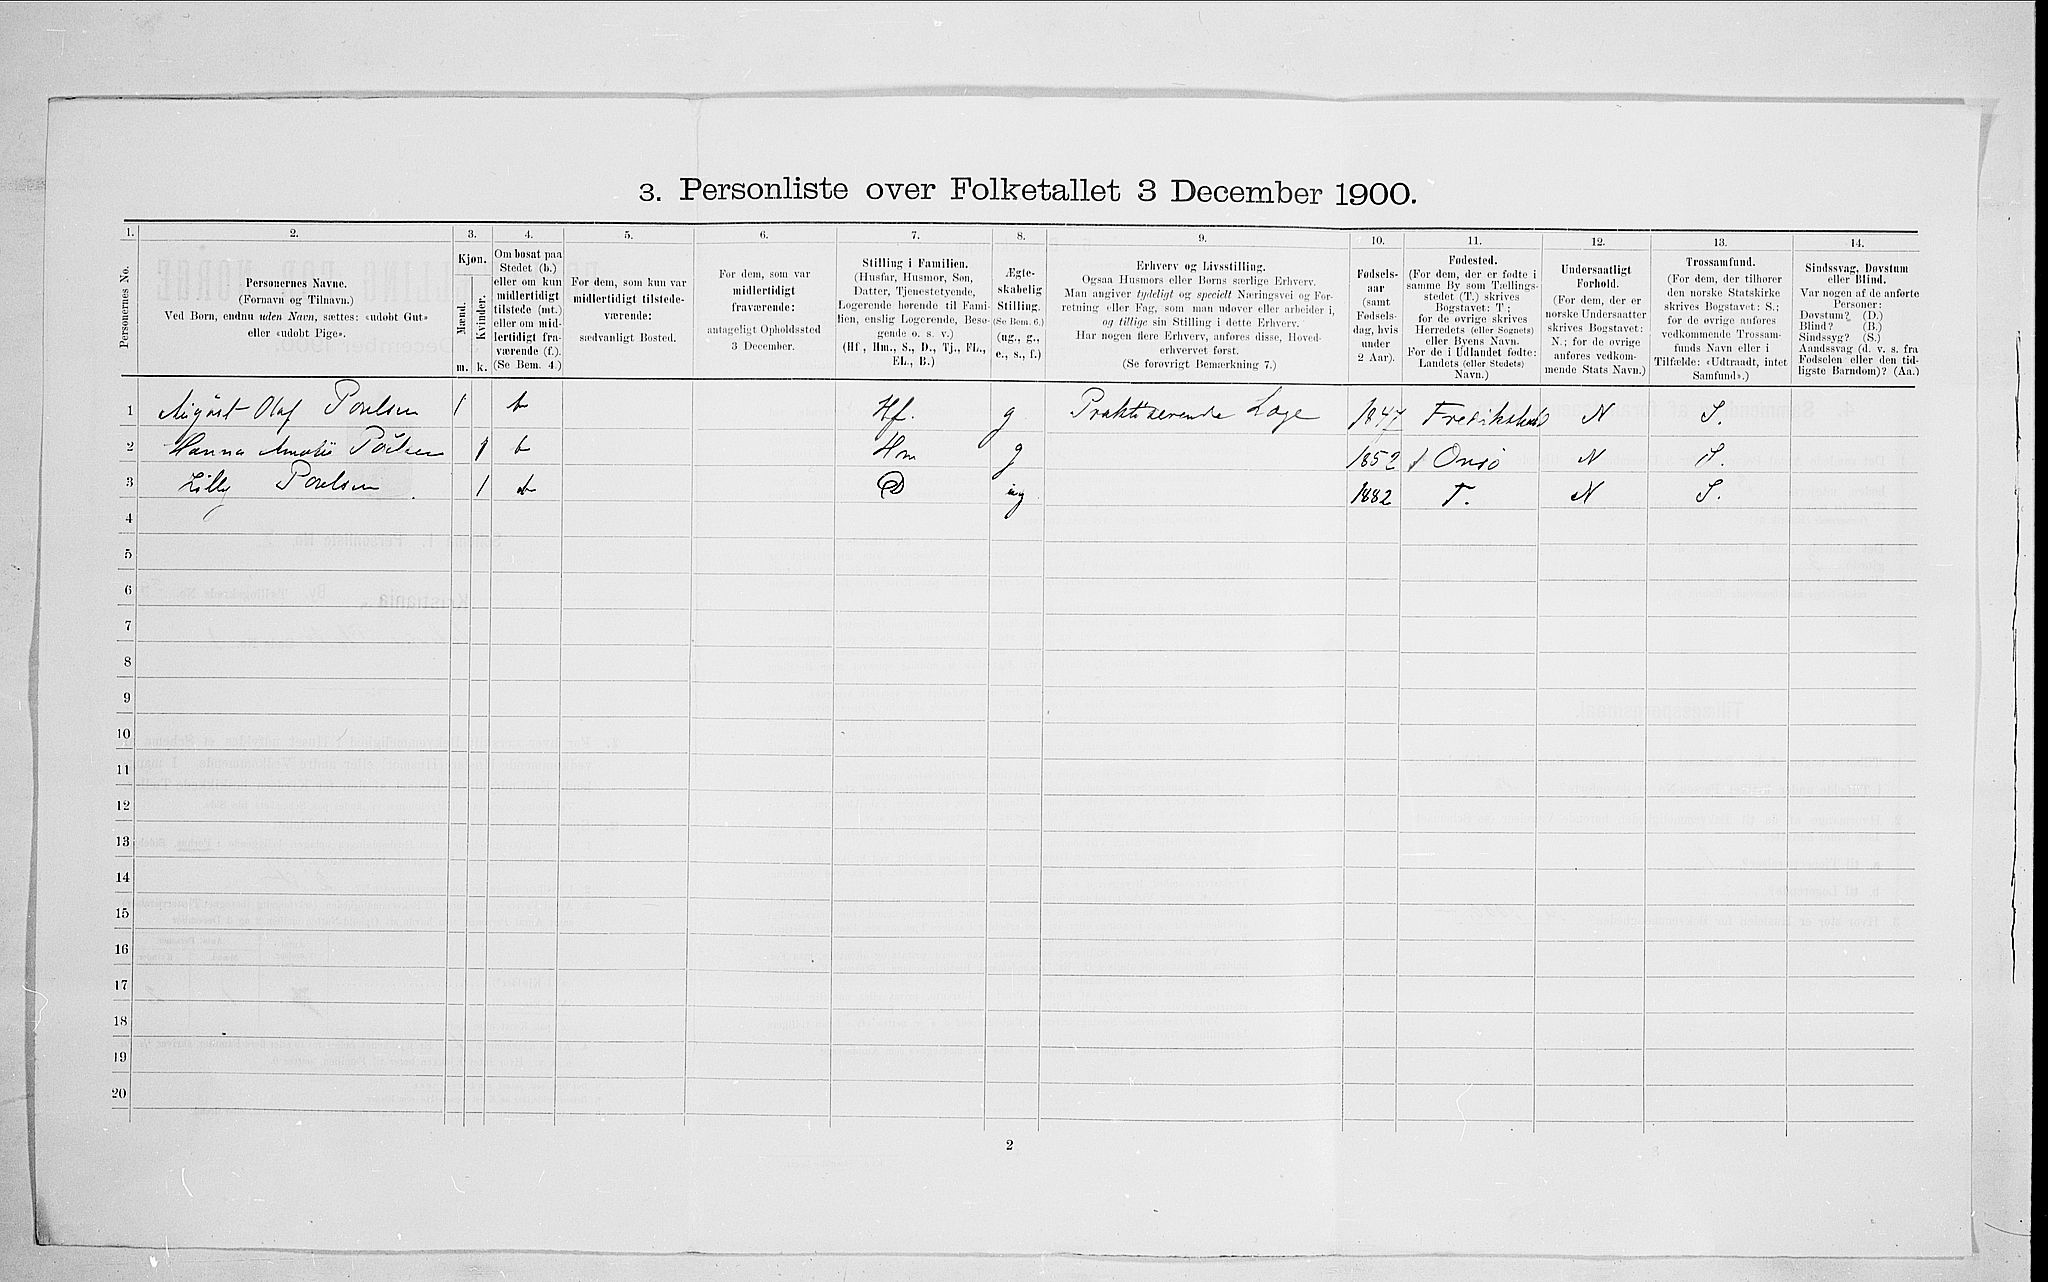 3. Personliste over Folketallet 3 December 1900.
1. 2. 3. 4. 5. 6. 7. 8. 9. 10. 11. 12. 13. 14.
Personernes No.
Personernes Navne.
(Fornavn og Tilnavn.)
Ved Børn, endnu uden Navn, sættes: «udøbt Gut»
eller «udøbt Pige».
Kjøn.
Mænd.
Kvinder.
m. k.
Om bosat paa
Stedet (b.)
eller om kun
midlertidigt
tilstede (mt.)
eller om mid-
lertidigt fra-
værende (f.).
(Se Bem. 4.)
For dem, som kun var
midlertidigt tilstede-
værende:
sædvanligt Bosted.
For dem, som var
midlertidigt
fraværende:
antageligt Opholdssted
3 December.
Stilling i Familien.
(Husfar, Husmor, Søn,
Datter, Tjenestetyende,
Logerende hørende til Fami-
lien, enslig Logerende, Besø-
gende o. s. v.)
(Hf, Hm., S., D., Tj., FL.,
EL., B.)
Ægte-
skabelig
Stilling.
(Se Bem. 6.)
(ug., g.,
e., s., f.)
Erhverv og Livsstilling.
Ogsaa Husmors eller Børns særlige Erhverv.
Man angiver tydeligt og specielt Næringsvei og For-
retning eller Fag, som man udøver eller arbeider i,
og tillige sin Stilling i dette Erhverv.
Har nogen flere Erhverv, anføres disse, Hoved-
erhvervet først.
(Se forøvrigt Bemærkning 7.)
Fødsels-
aar
(samt
Fødsels-
dag, hvis
under
2 Aar).
Fødested.
(For dem, der er fødte i
samme By som Tællings-
stedet (T.) skrives
Bogstavet: T;
for de øvrige skrives
Herredets (eller Sognets)
eller Byens Navn.
For de i Udlandet fødte:
Landets (eller Stedets)
Navn.)
Undersaatligt
Forhold.
(For dem, der er
norske Undersaatter
skrives Bogstavet:
N.; for de øvrige
anføres vedkom-
mende Stats Navn.)
Trossamfund.
(For dem, der tilhører
den norske Statskirke
skrives Bogstavet: S.;
for de øvrige anføres
vedkommende Trossam-
funds Navn eller i
Tilfælde: «Udtraadt, intet
Samfund».)
Sindssvag, Døvstum
eller Blind.
Var nogen af de anførte
Personer:
Døvstum? (D.)
Blind? (B.)
Sindssyg? (S.)
Aandssvag (d. v. s. fra
Fødselen eller den tid-
ligste Barndom)? (Aa.)
1 August Olaf Poulsen 1 b Hf. g Praktiserende Læge 1847 Fredrikshald N S.
2 Hanna Amalie Poulsen 1 b Hm g 1852 Onsø N S.
3 Lilly Poulsen 1 b D ug 1882 T. N S.
4
5
6
7
8
9
10
11
12
13
14
15
16
17
18
19
20
2